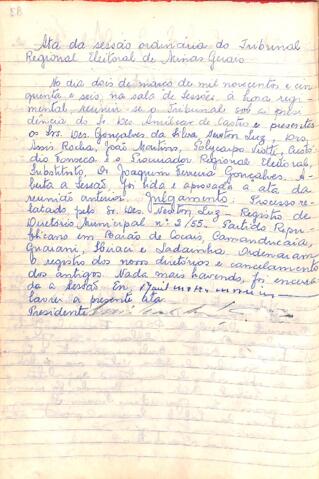 58
Ata da sessão ordinária do Tribunal
Regional Eleitoral de Minas Gerais
No dia dois de março de mil novecentos e cin
quenta e seis, na sala de sessões, à hora regi-
mental, reuniu-se o Tribunal sob a presi
dência do Sr. Des. Amilcar de Castro e presentes
os Srs. Des. Gonçalves da Silva, Newton Luz, Drs.
Assis Rocha, João Martins, Policarpo Viotti,
Fonseca e o Procurador Regional Eleitoral,
Substituto, Dr. Joaquim Ferreira Gonçalves. A-
berta a Sessão, foi lida e aprovada a ata da
reunião anterior. Julgamento: Processo re-
latado pelo Sr. Des. Newton Luz - Registro de
Diretório Municipal nº 2/55. Partido Repu-
blicano em Barão de Cocais, Camanducaia,
Guarani, e Ladainha. Ordenaram
o registro dos novos diretórios e cancelamento
dos antigos. Nada mais havendo, foi encerra
da a sessão. Eu,
lavrei a presente ata.
Presidente